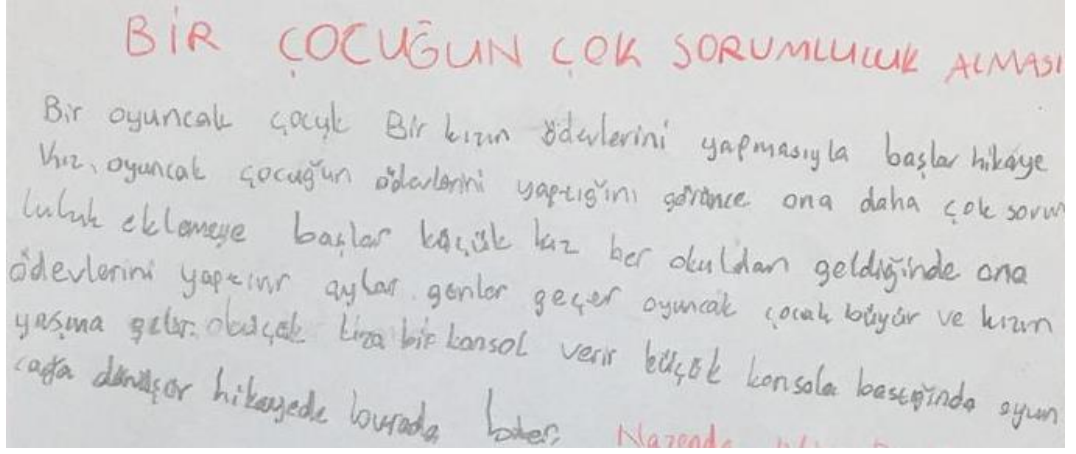 BİR ÇOCUĞUN ÇOK SORUMLULUK ALMASI
Bir oyuncak çocuk Bir kızın ödevlerini yapmasıyla başlar hikaye
kız, oyuncak çocuğun ödevlerini yaptığını görünce ona daha çok sorum
luluk eklemeye başlar küçük kız her okuldan geldiğinde ona
ödevlerini yaptırır aylar günler geçer oyuncak çocuk büyür ve kızın
yaşına gelir. kıza bir konsol verir küçük konsola bastığında oyun
cağa dönüşür hikayede burada biter.
Nazende